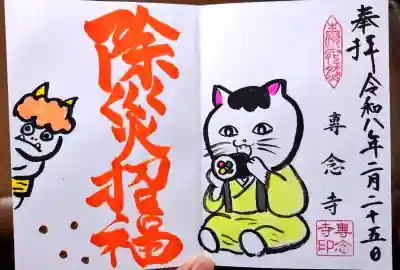 奉拝 令和八年二月二十五日
専念寺
専念寺印
除災招福